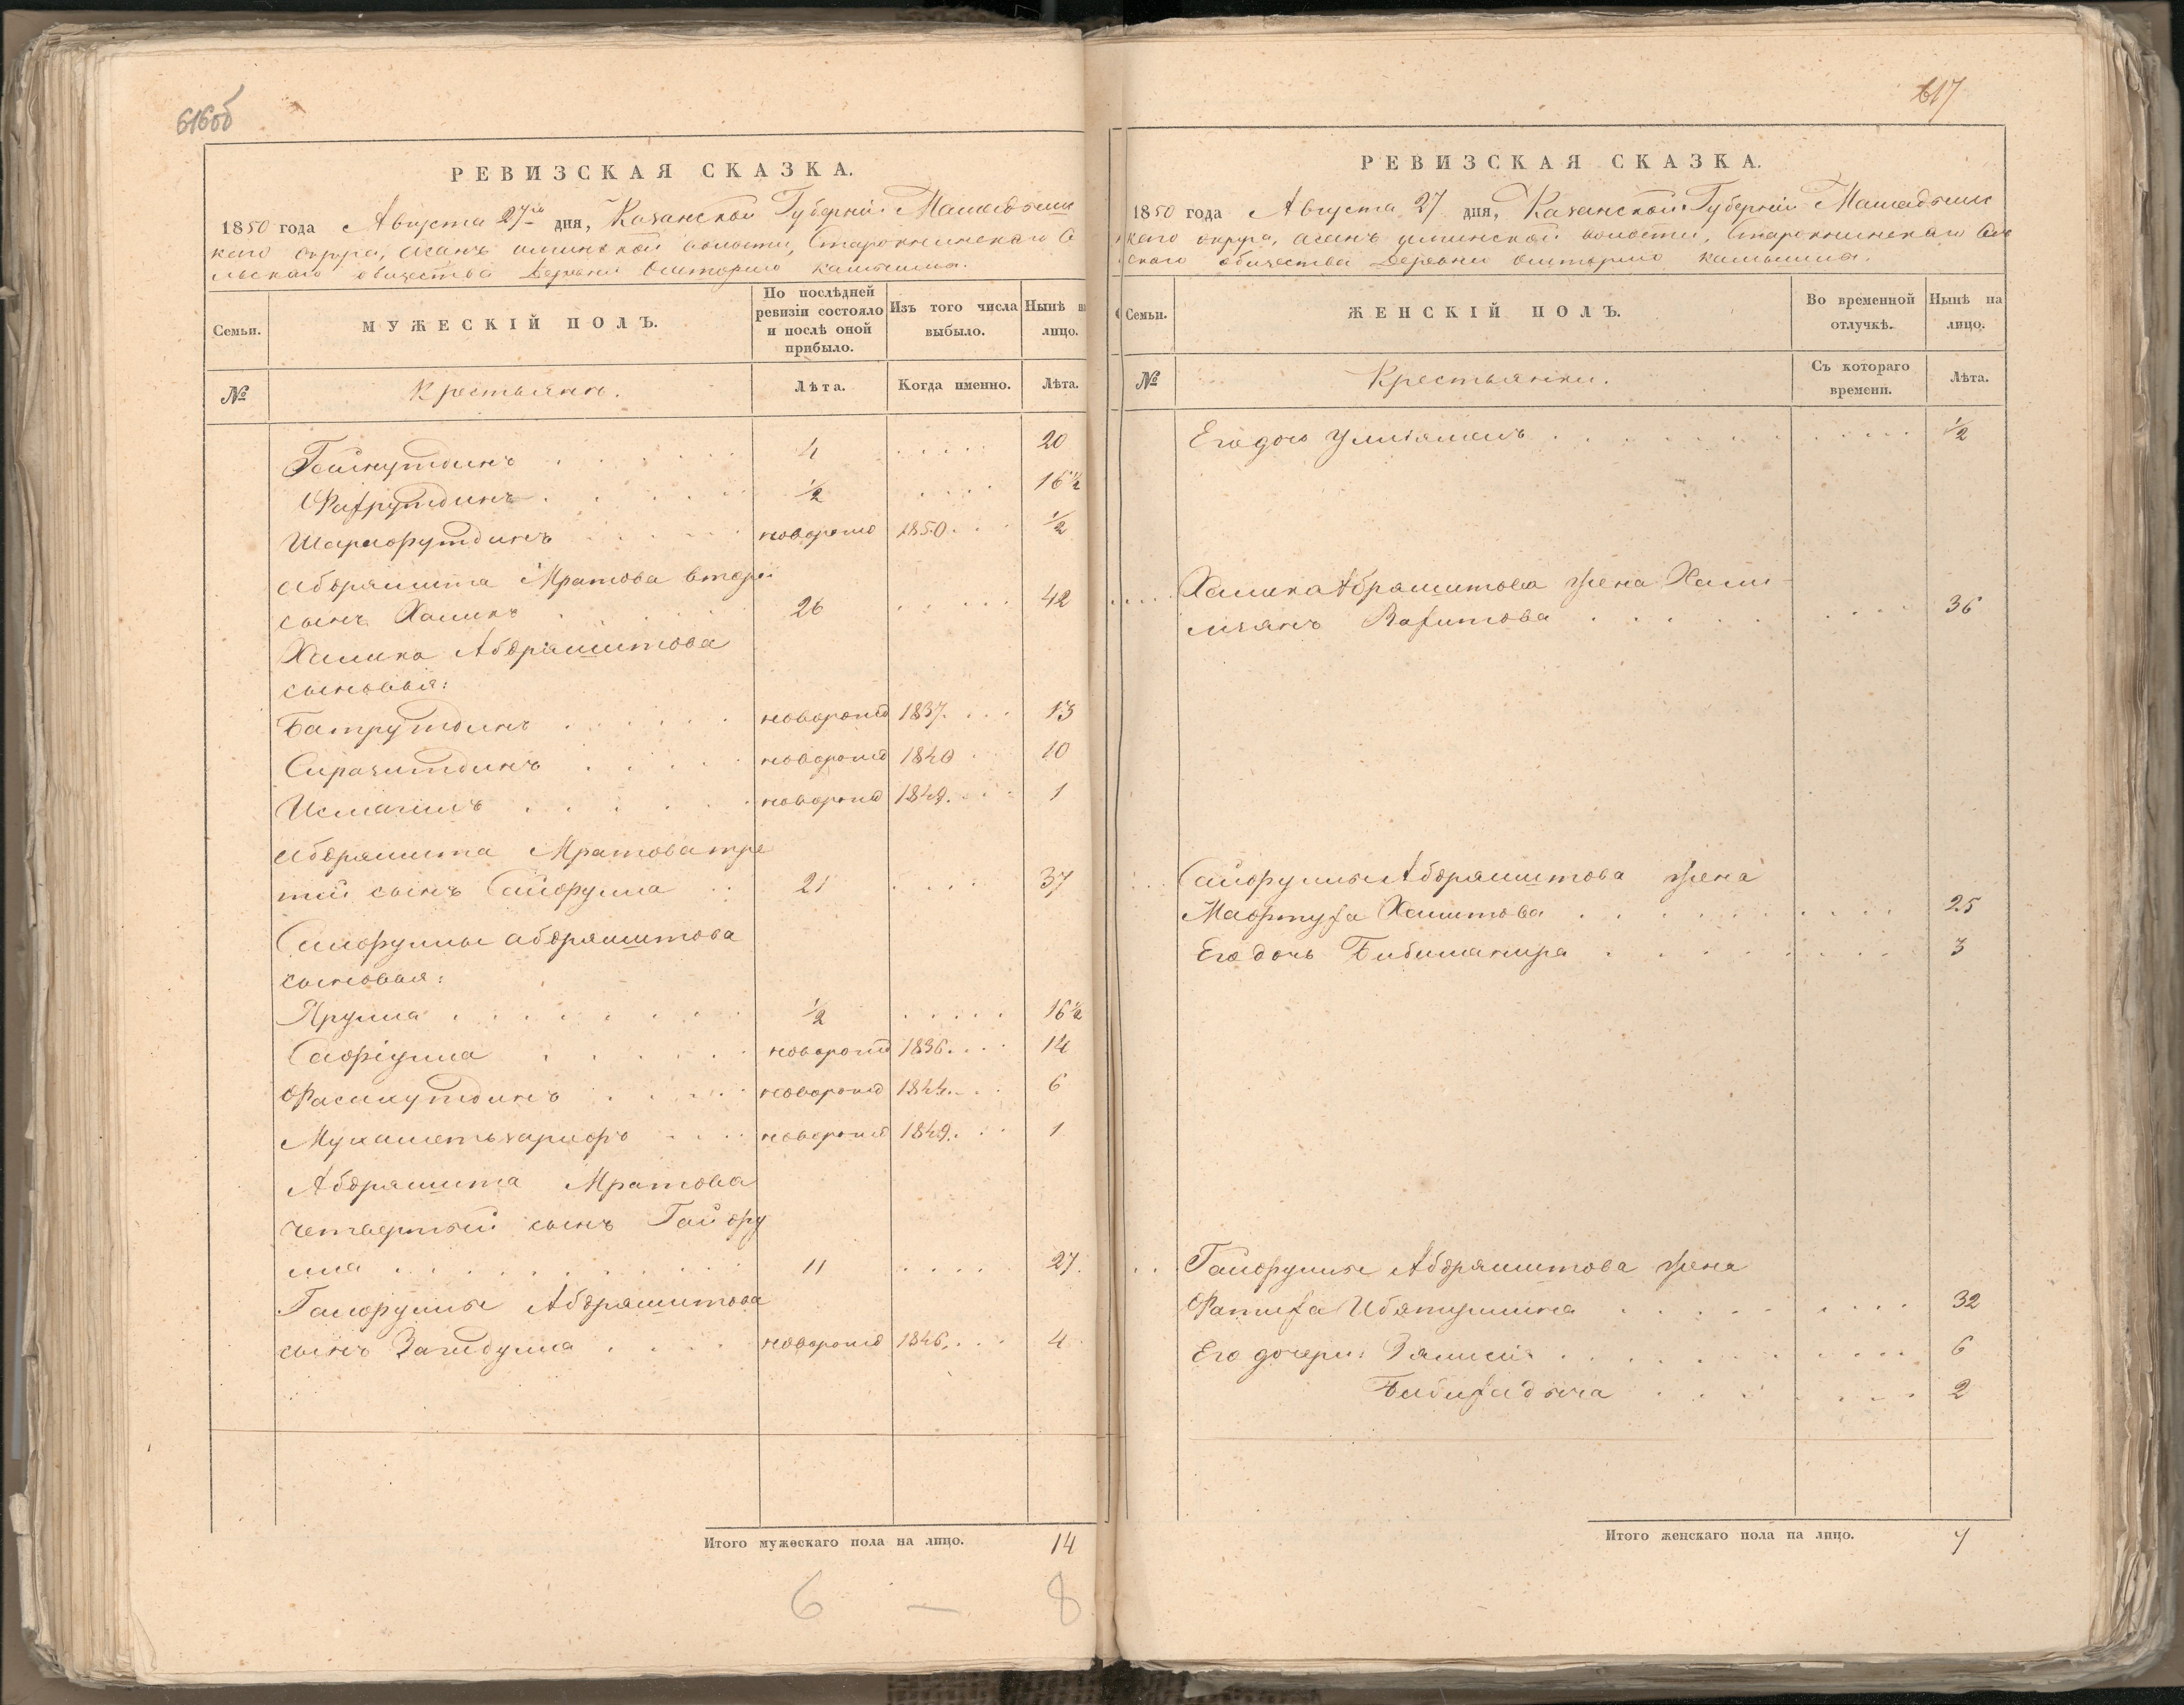 616об
РЕВИЗСКАЯ СКАЗКА.
1850 года Августа 27го дня, Казанской Губерніи Мамадышс
каго округа, Асанъ илинской волости, Старокнинскаго Се
льскаго общества Деревни Ошторма
МУЖЕСКІЙ ПОЛЪ.
Семьи.
По послѣдней ревизіи состояло и послѣ оной прибыло.
Изъ того числа выбыло.
Нынѣ на лицо.
№
Крестьянъ.
Лѣта.
Когда именно.
Лѣта.
Гайнутдинъ 4 20
Фахрутдинъ ½ 16½
Шарафутдинъ новорожд 1850 ½
Абдряшита Мратова второй
сынъ Халикъ 26 42
Халика Абдряшитова
сыновья:
Батрутдинъ новорожд 1837 13
Сиразитдинъ новорожд 1840 10
Исмагилъ новорожд 1849 1
Абдряшита Мратова тре
тій сынъ Сайфулла 21 37
Сайфуллы Абдряшитова
сыновья:
Ярулла ½ 16½
Сафіулла новорожд 1836 14
Фасахутдинъ новорожд 1844 6
Мухаметьзарифъ новорожд 1849 1
Абдряшита Мратова
четвертый сынъ Гайфу
лла 11 27
Гайфуллы Абдряшитова
сынъ Загидулла новорожд 1846 4
Итого мужескаго пола на лицо. 14
6 — 8
617
РЕВИЗСКАЯ СКАЗКА.
1850 года Августа 27 дня, Казанской Губерніи Мамадышс
каго округа, Асанъ илинской волости, Старокнинскаго Сель
скаго общества Деревни Ошторма
Семьи.
ЖЕНСКІЙ ПОЛЪ.
Во временной отлучкѣ.
Нынѣ на лицо.
№
Крестьянки.
Съ котораго времени.
Лѣта.
Его дочь ½
Халика Абдряшитова жена Хами
Вахитова 36
Сайфуллы Абдряшитова жена
Мафтуха Хамитова 25
Его дочь 3
Гайфуллы Абдряшитова жена
Фатиха Ибятуллина 32
Его дочери: 6
Бибихадыча 2
Итого женскаго пола на лицо. 7